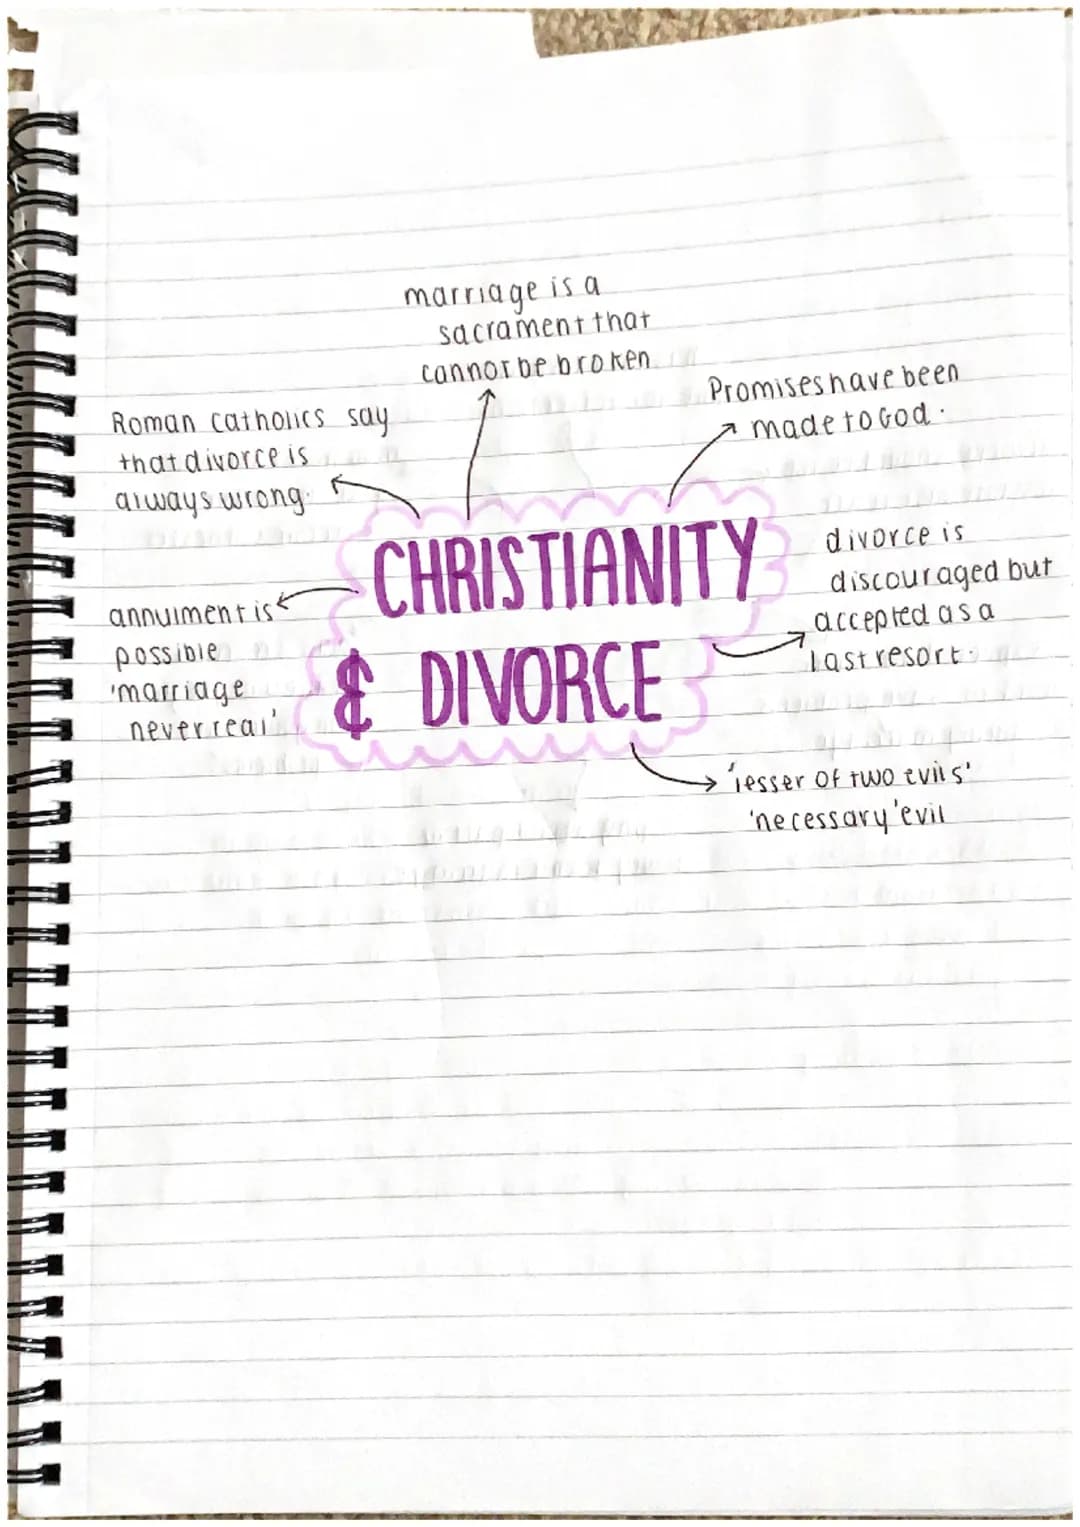 marriage is a
sacrament that
cannot be broken
Promises have been
made to God.
Roman Catholics say
that divorce is
always wrong.
CHRISTIANITY
& DIVORCE
divorce is
discouraged but
accepted as a
last resort.
annulment is
possible
'marriage
never real'
'lesser of two evils'
'necessary' evil